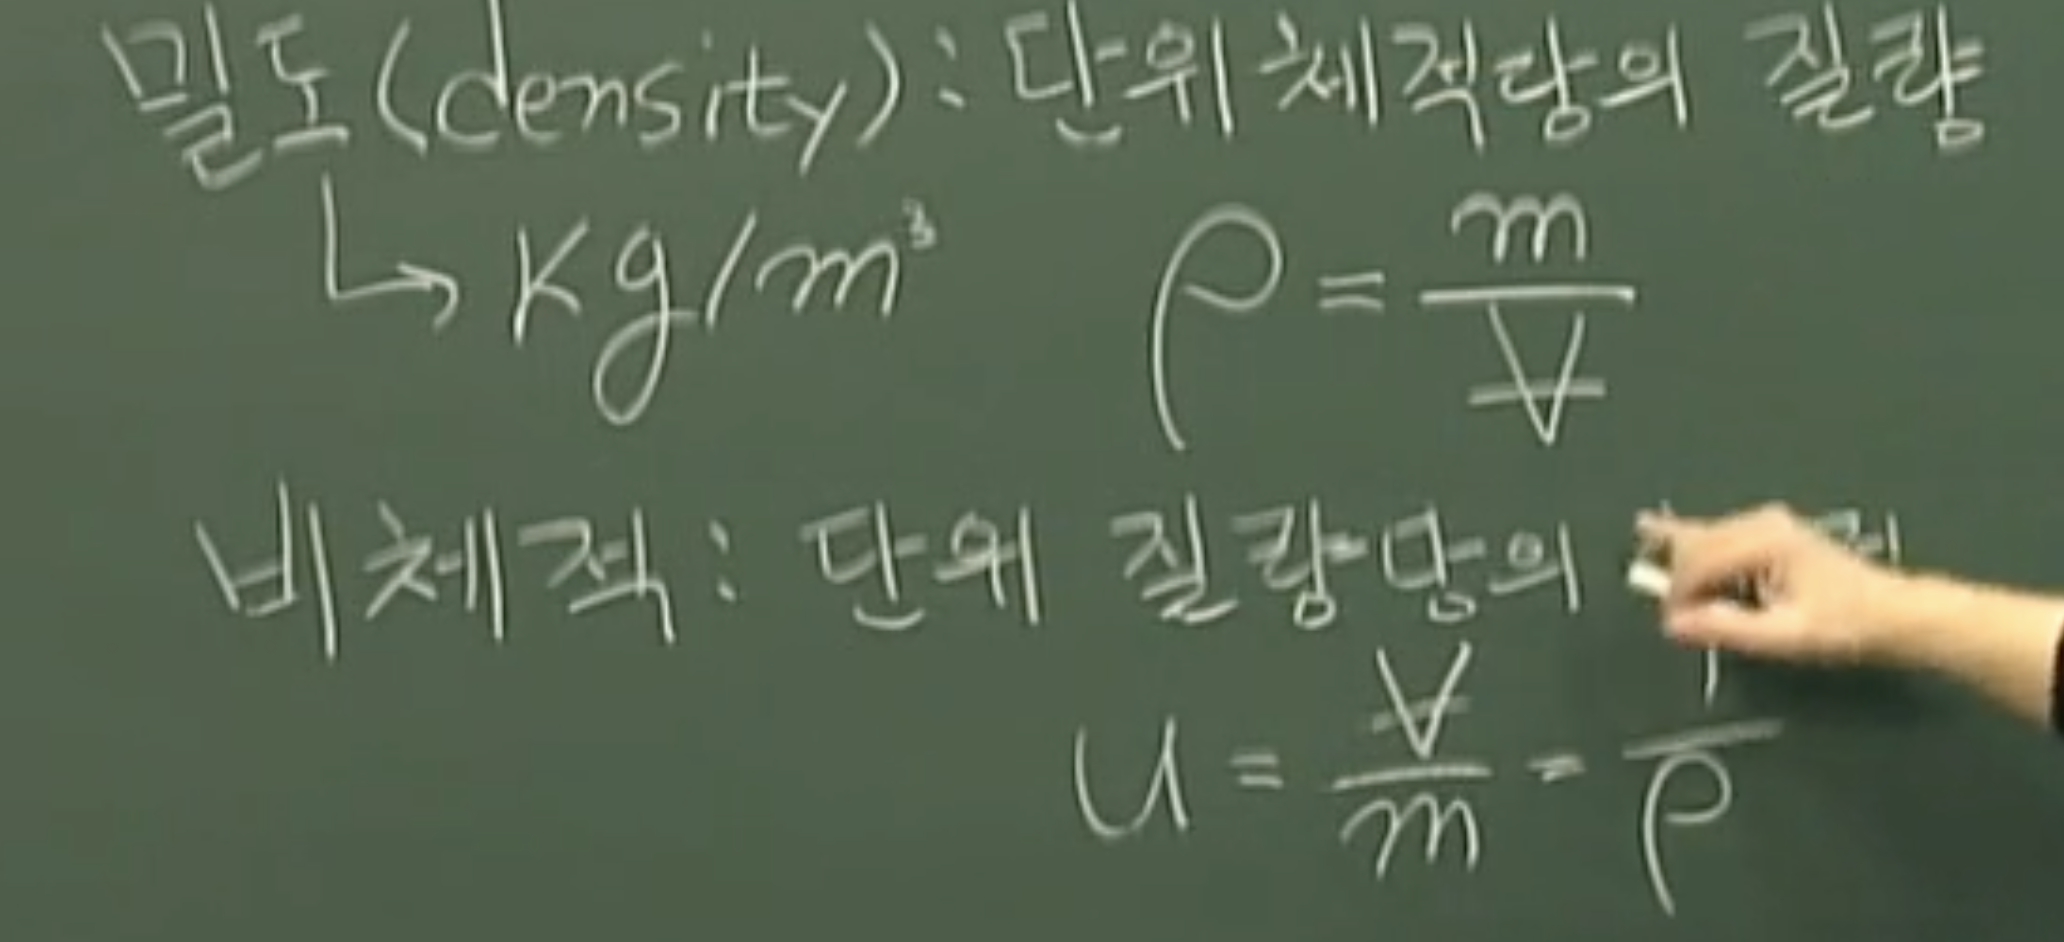 밀도(density): 단위체적당의 질량
↳ Kg/m³
ρ = m/V
비체적: 단위 질량당의
u = V/m = 1/ρ